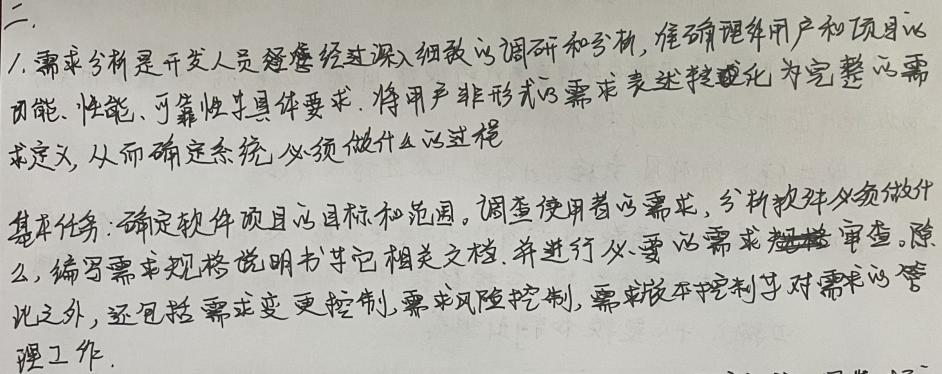 二.
1.需求分析是开发人员经过深入细致的调研和分析,准确理解用户和项目的
功能、性能、可靠性等具体要求.将用户非形式的需求表述转化为完整的需
求定义,从而确定系统必须做什么的过程
基本任务:确定软件项目的目标和范围。调查使用者的需求,分析软件必须做什
么,编写需求规格说明书等它相关文档.并进行必要的需求审查。除
此之外,还包括需求变更控制,需求风险控制,需求版本控制等对需求的管
理工作.